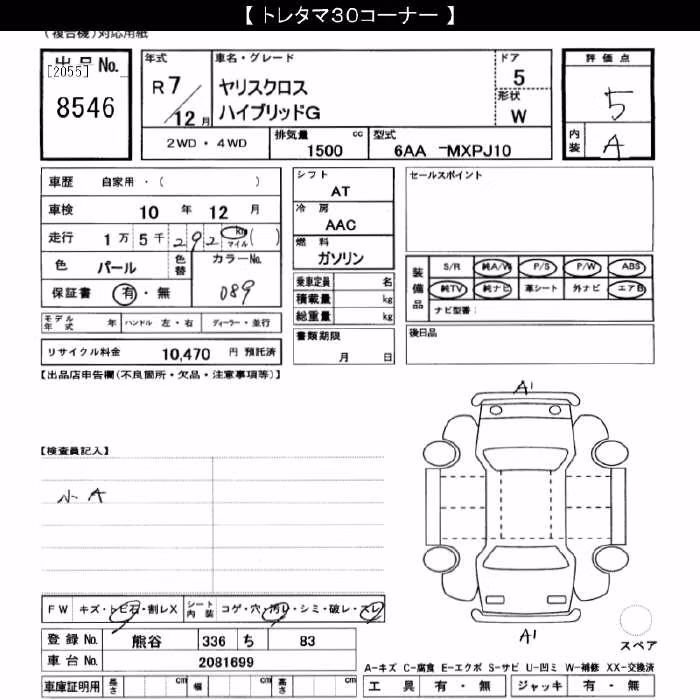 【 トレタマ30コーナー 】
(複合機)対応用紙
出品No.
[2055]
8546
年式
R7/12月
車名・グレード
ヤリスクロス
ハイブリッドG
ドア
5
形状
W
評価点
5
内装
A
2WD・4WD
排気量
1500 cc
型式
6AA -MXPJ10
車歴 自家用・( )
車検 10 年 12 月
走行 1万 5千 292 km マイル ( )
色 パール 色替
カラーNo.
089
保証書 有・無
モデル年式 年 ハンドル 左・右 ディーラー・並行
リサイクル料金 10,470 円 預託済
シフト
AT
冷房
AAC
燃料
ガソリン
乗車定員 名
積載量 kg
総重量 kg
書類期限
月 日
セールスポイント
装備品
S/R 純A/W P/S P/W ABS
純TV 純ナビ 革シート 外ナビ エアB
ナビ型番:
後日品
【出品店申告欄(不良箇所・欠品・注意事項等)】
【検査員記入】
小A
A1
A1
スペア
FW キズ・トビ石・割レX
シート内装 コゲ・穴・汚レ・シミ・破レ・スレ
登録No. 熊谷 336 ち 83
車台No. 2081699
車庫証明用 長さ cm 幅 cm 高さ cm
A-キズ C-腐食 E-エクボ S-サビ U-凹ミ W-補修 XX-交換済
工具 有・無 ジャッキ 有・無